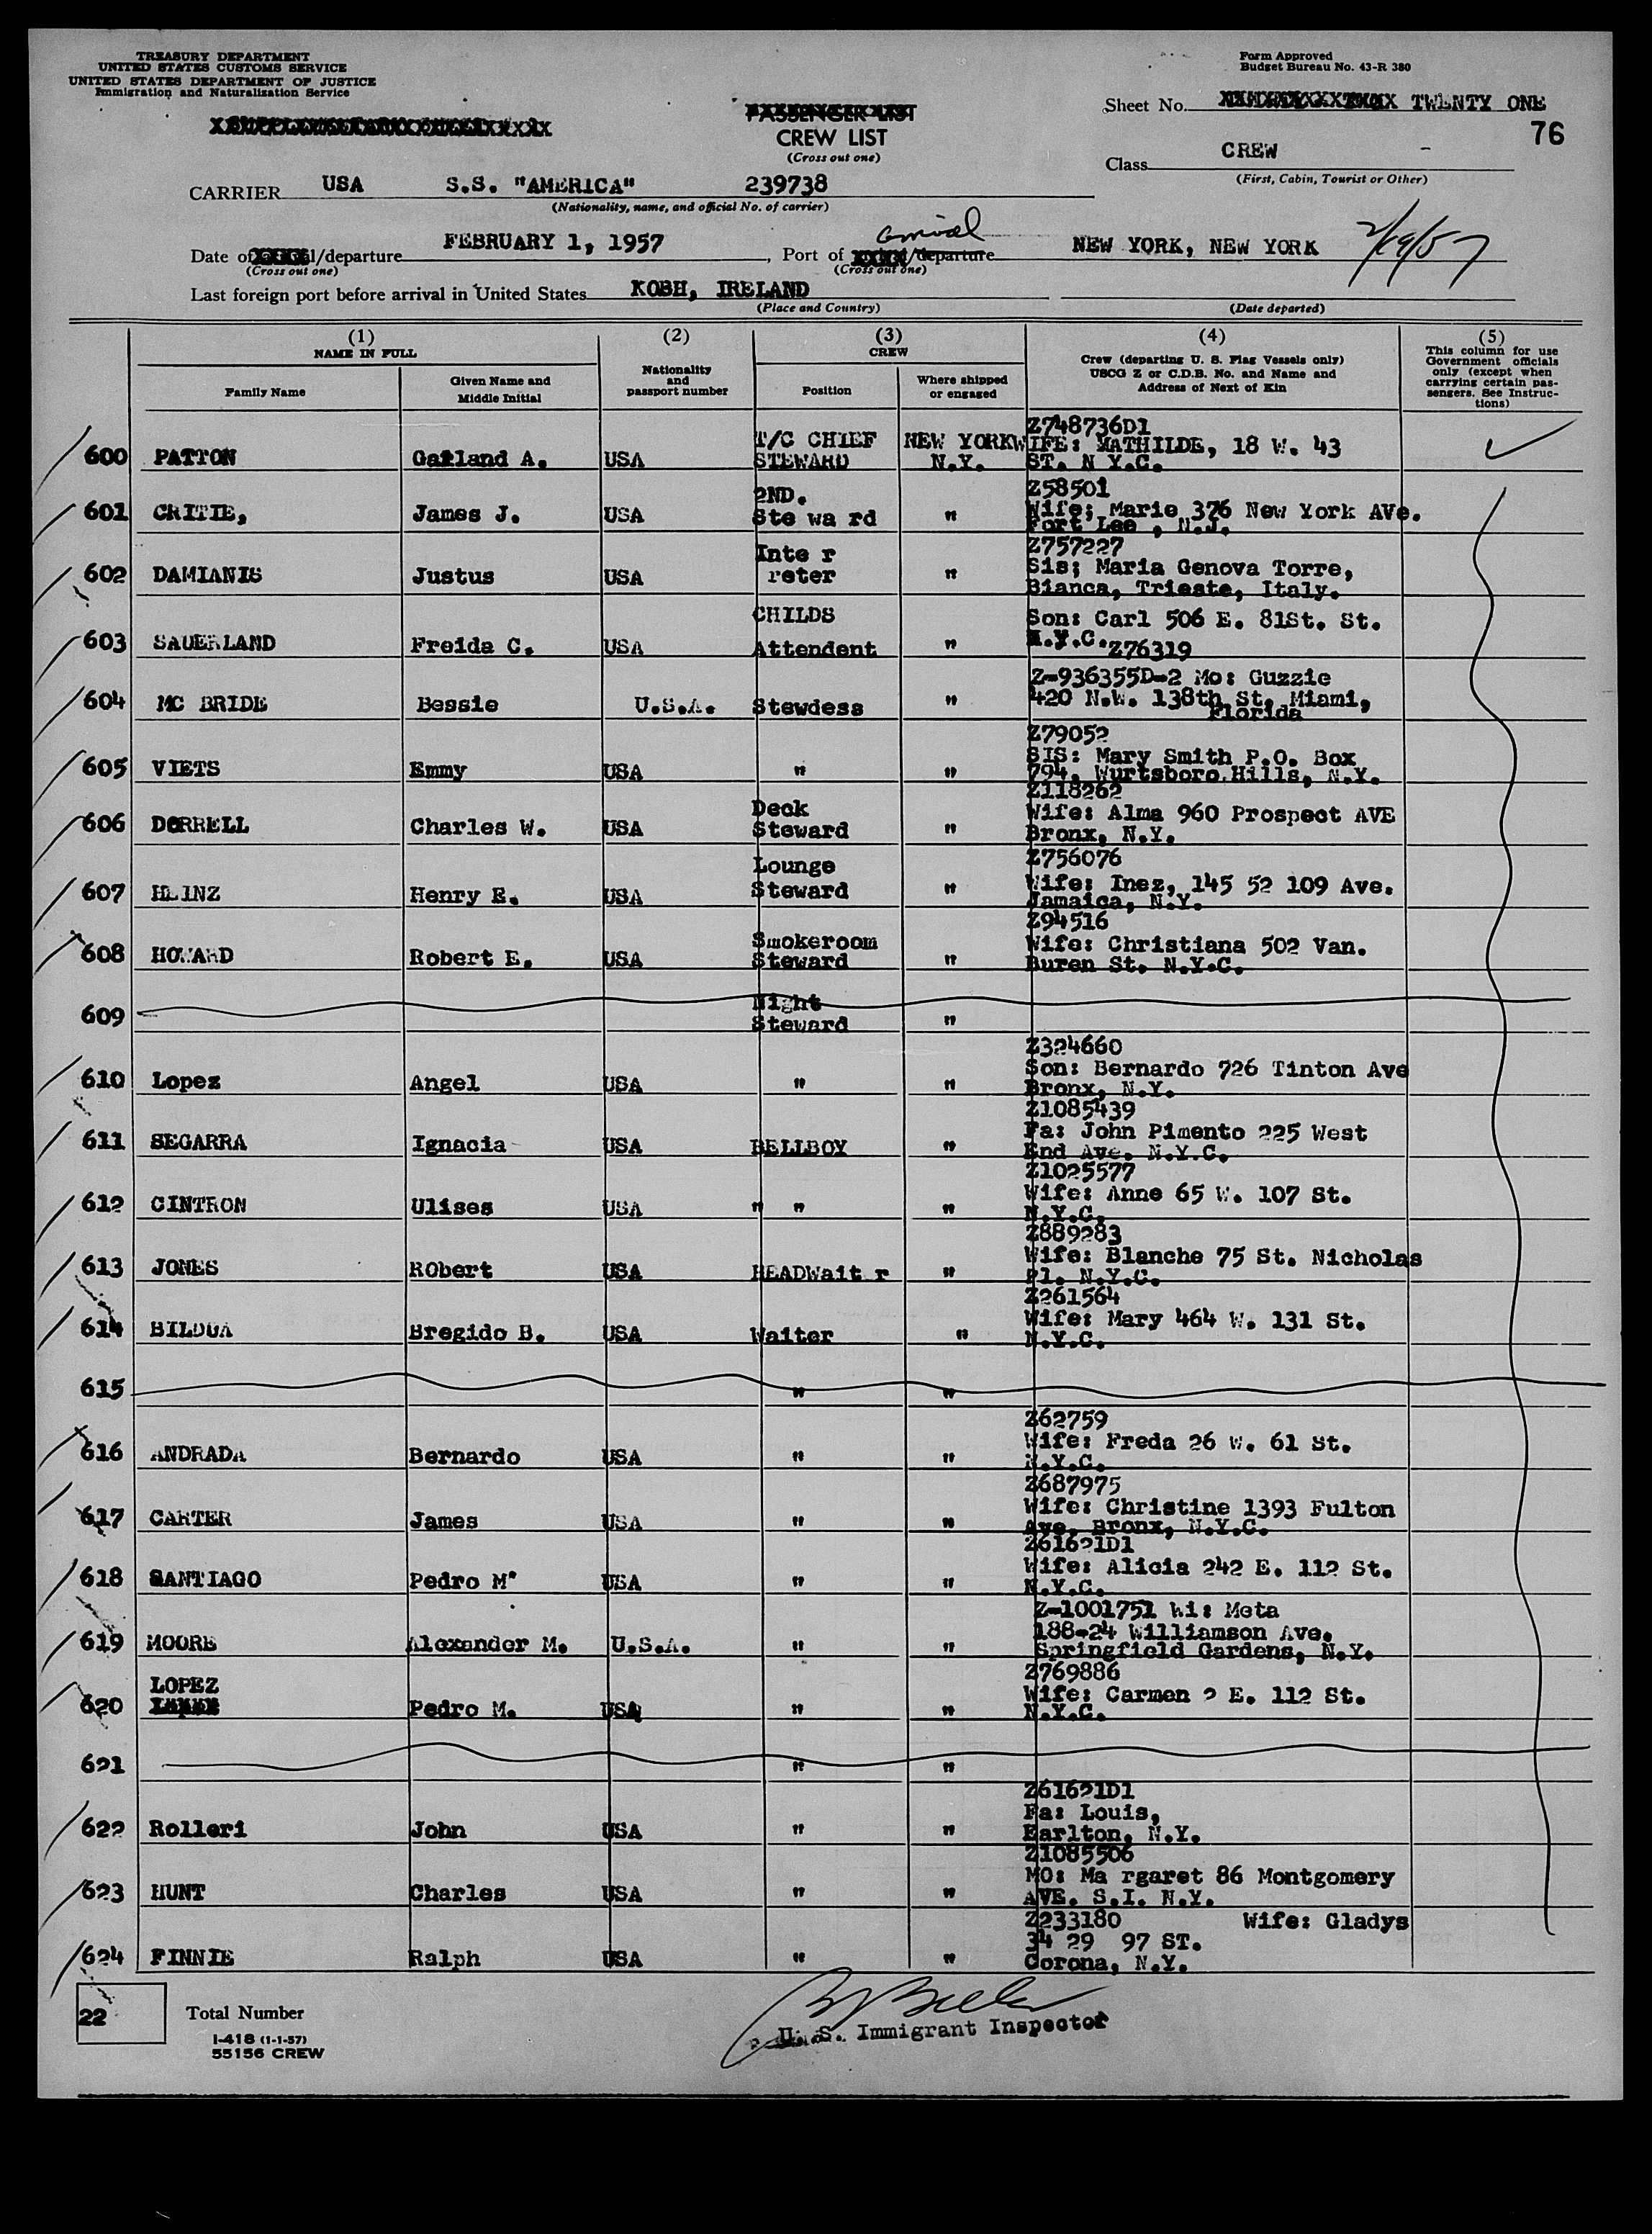 TREASURY DEPARTMENT
UNITED STATES CUSTOMS SERVICE
UNITED STATES DEPARTMENT OF JUSTICE
Immigration and Naturalization Service
Form Approved
Budget Bureau No. 43-R 380
PASSENGER LIST
CREW LIST
(Cross out one)
Sheet No. TWENTY ONE
76
Class CREW -
(First, Cabin, Tourist or Other)
CARRIER USA S.S. "AMERICA" 239738
(Nationality, name, and official No. of carrier)
Date of /departure FEBRUARY 1, 1957, Port of arrival /departure NEW YORK, NEW YORK 2/19/57
(Cross out one) (Cross out one)
Last foreign port before arrival in United States KOBH, IRELAND
(Place and Country) (Date departed)
(1) NAME IN FULL
Family Name
Given Name and Middle Initial
(2)
Nationality and passport number
(3) CREW
Position
Where shipped or engaged
(4)
Crew (departing U. S. Flag Vessels only)
USCG Z or C.D.B. No. and Name and
Address of Next of Kin
(5)
This column for use
Government officials
only (except when
carrying certain pas-
sengers. See Instruc-
tions)
600 PATTON Garland A. USA T/C CHIEF STEWARD NEW YORK N.Y. Z748736D1
WIFE: MATHILDE, 18 W. 43
ST. N Y.C.
601 CRITIE, James J. USA 2ND. Ste wa rd " Z58501
Wife; Marie 376 New York AVe.
Fort Lee , N.J.
602 DAMIANIS Justus USA Inte r reter " Z757227
Sis; Maria Genova Torre,
Bianca, Trieste, Italy.
603 SAUERLAND Freida C. USA CHILDS Attendent " Son: Carl 506 E. 81St. St.
N.Y.C. Z76319
604 MC BRIDE Bessie U.S.A. Stewdess " Z-936355D-2 Mo: Guzzie
420 N.W. 138th St, Miami,
Florida
605 VIETS Emmy USA " " Z79052
SIS: Mary Smith P.O. Box
794, Wurtsboro Hills, N.Y.
606 DORRELL Charles W. USA Deck Steward " Z118262
Wife: Alma 960 Prospect AVE
Bronx, N.Y.
607 HEINZ Henry E. USA Lounge Steward " Z756076
Wife: Inez, 145 52 109 Ave.
Jamaica, N.Y.
608 HOWARD Robert E. USA Smokeroom Steward " Z94516
Wife: Christiana 502 Van.
Buren St. N.Y.C.
609 Night Steward "
610 Lopez Angel USA " " Z324660
Son: Bernardo 726 Tinton Ave
Bronx, N.Y.
611 SEGARRA Ignacia USA BELLBOY " Z1085439
Fa: John Pimento 225 West
End Ave. N.Y.C.
612 CINTRON Ulises USA " " " Z1025577
Wife: Anne 65 W. 107 St.
N.Y.C.
613 JONES RObert USA HEADWait r " Z889283
Wife: Blanche 75 St. Nicholas
Pl. N.Y.C.
614 BILDUA Bregido B. USA Waiter " Z261564
Wife: Mary 464 W. 131 St.
N.Y.C.
615 " "
616 ANDRADA Bernardo USA " " Z62759
Wife: Freda 26 W. 61 St.
N.Y.C.
617 CARTER James USA " " Z687975
Wife: Christine 1393 Fulton
Ave, Bronx, N.Y.C.
618 SANTIAGO Pedro M. USA " " Z61621D1
Wife: Alicia 242 E. 112 St.
N.Y.C.
619 MOORE Alexander M. U.S.A. " " Z-1001751 Wi: Meta
188-24 Williamson Ave.
Springfield Gardens, N.Y.
620 LOPEZ Pedro M. USA " " Z769886
Wife: Carmen 2 E. 112 St.
N.Y.C.
621 " "
622 Rolleri John USA " " Z61621D1
Fa: Louis,
Earlton, N.Y.
623 HUNT Charles USA " " Z1085506
MO: Ma rgaret 86 Montgomery
AVE. S.I. N.Y.
624 FINNIE Ralph USA " " Z233180 Wife: Gladys
34 29 97 ST.
Corona, N.Y.
22 Total Number
I-418 (1-1-57)
55156 CREW
U. S. Immigrant Inspector